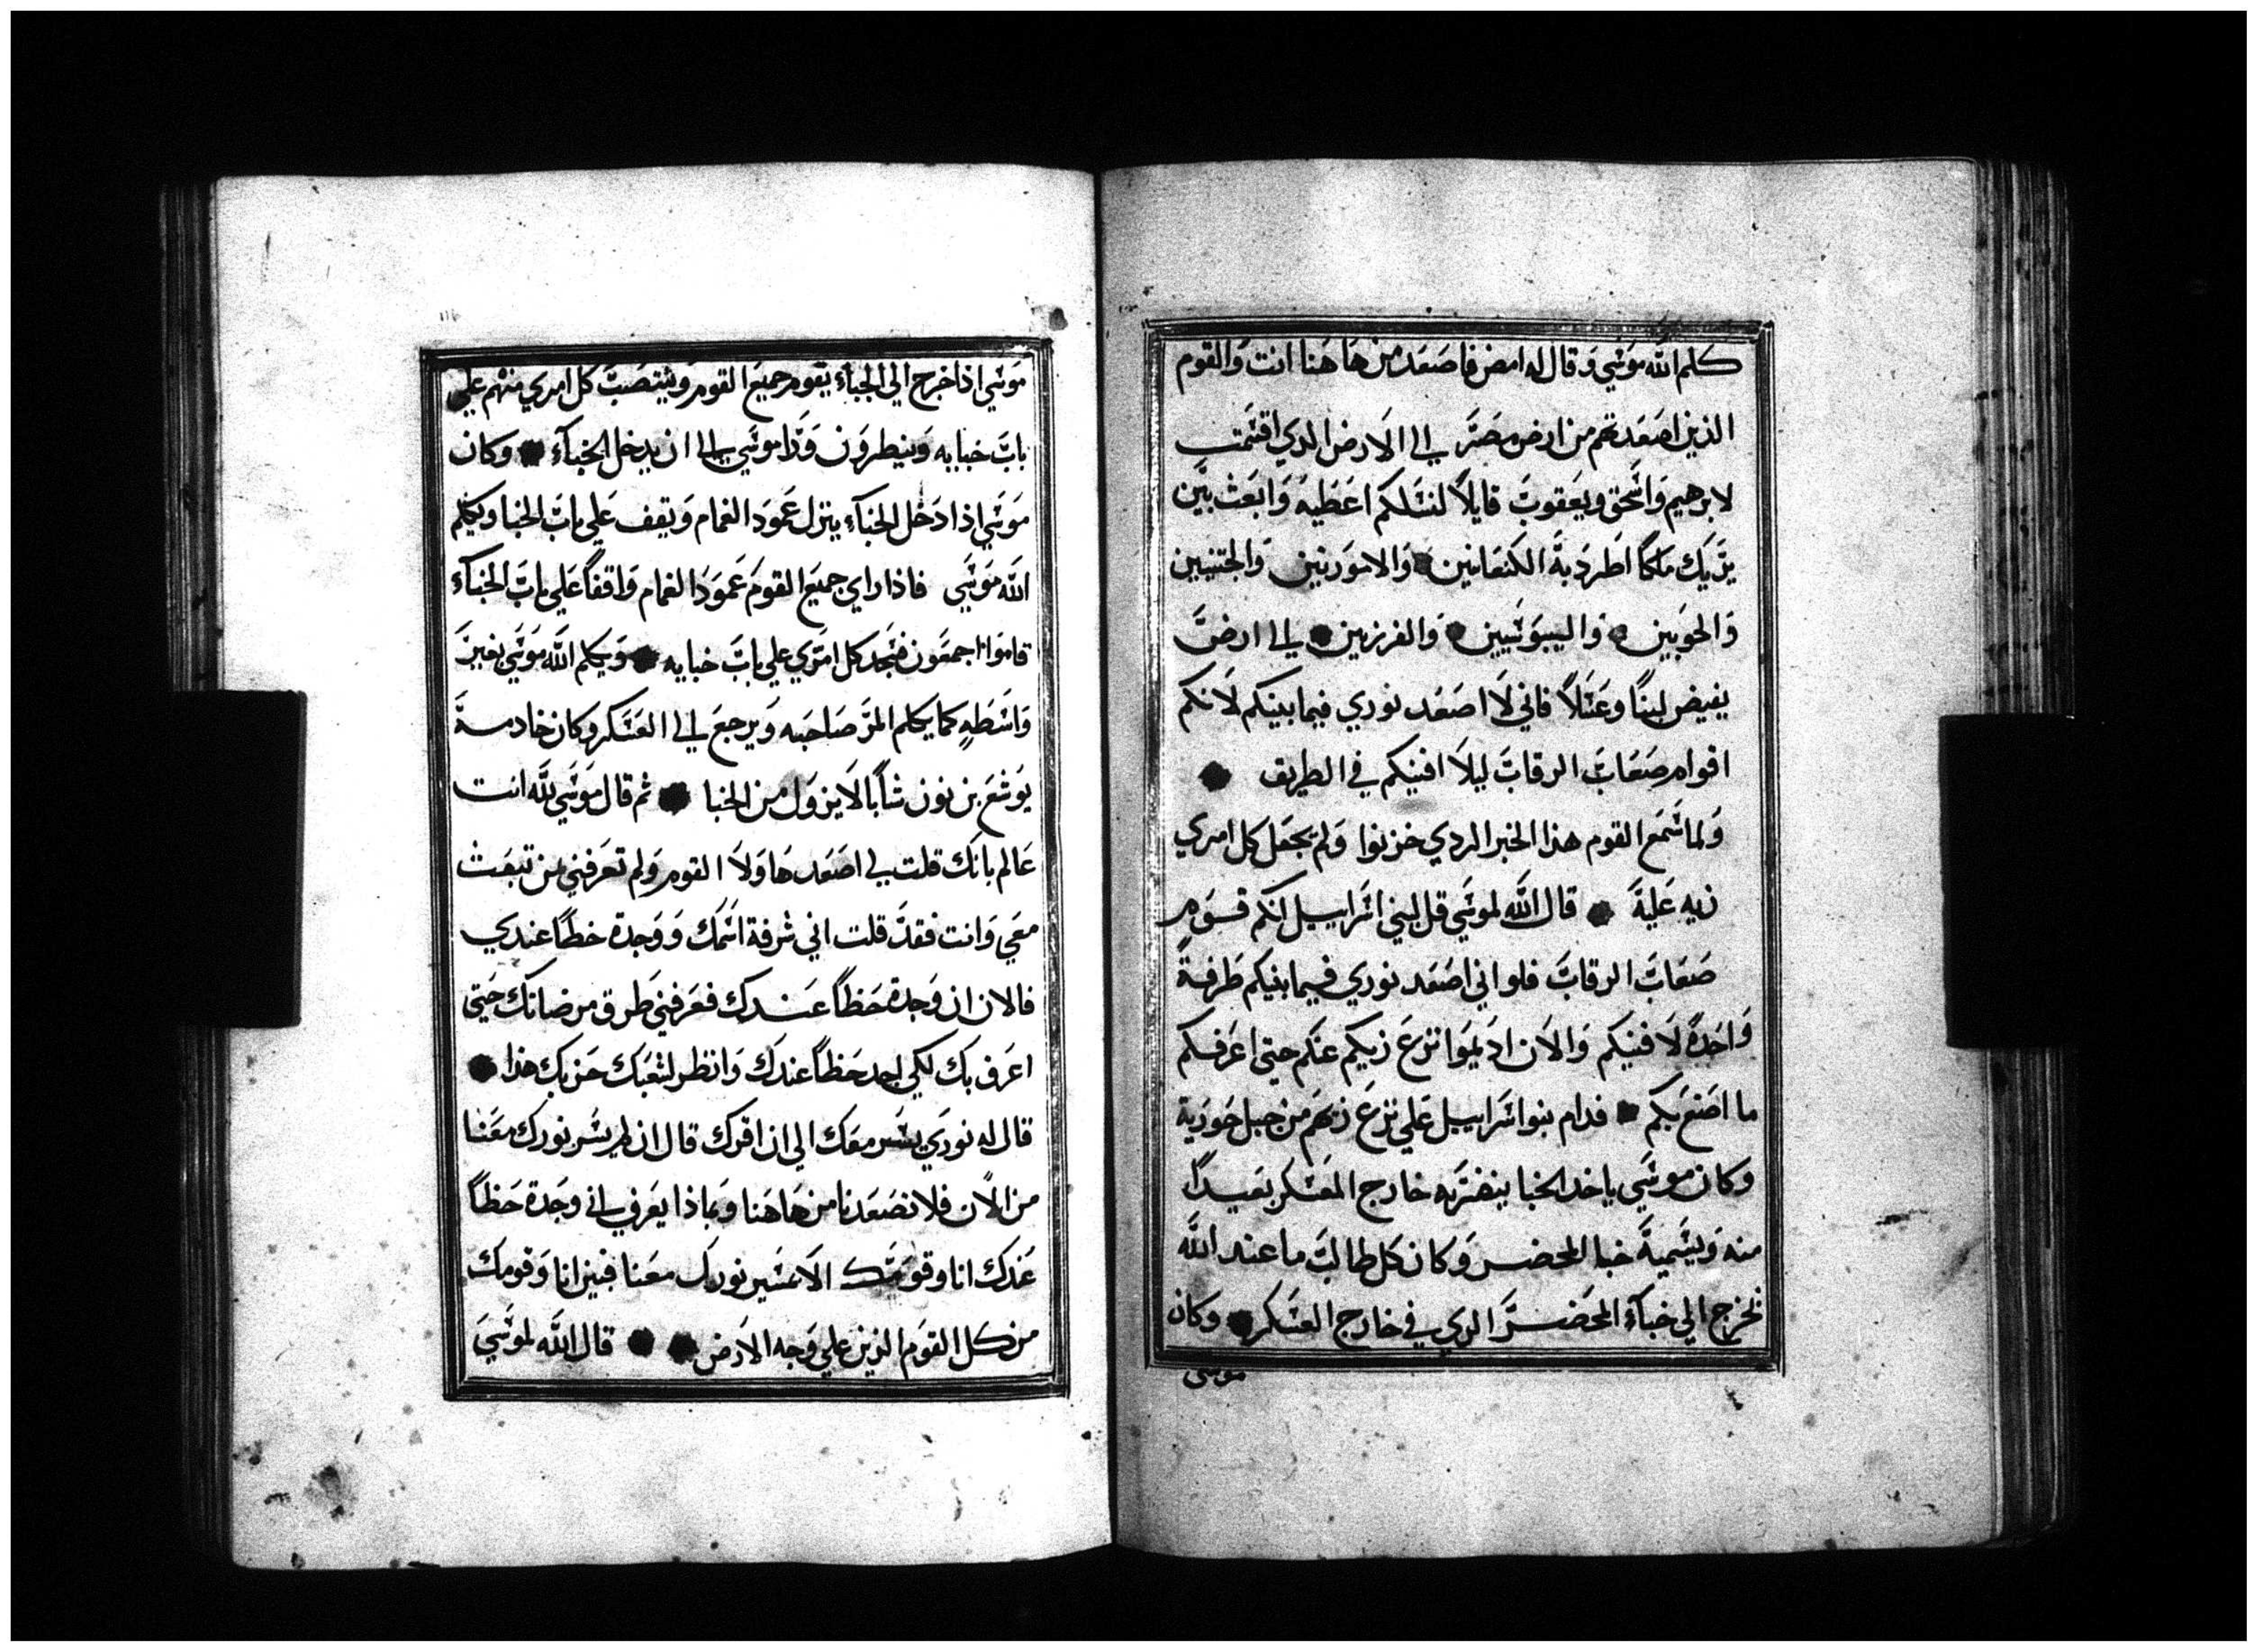 كلم الله موسي وقال له امض فاصعد من هاهنا انت والقوم
الذين اصعدتهم من ارض مصر الي الارض الدي اقسمت
لابرهيم واسحق ويعقوب قايلاً لنسلكم اعطيه وابعث بين
يديك ملكا اطرد به الكنعانيين والاموريين والحتيين
والحويين والييبوسيين والفرزيين الي ارض
يفيض لبنًا وعسلاً فاني لا اصعد نوري فيما بينكم لانكم
اقوام صعاب الرقاب ليلا افنيكم في الطريق
ولما سمع القوم هذا الخبر الردي حزنوا ولم يجعل كل امري
زيه عليه قال الله لموسي قل لبني اسراييل انكم قوم
صعاب الرقاب فلو اني اصعد نوري فيما بينكم طرفةً
واحدة لافنيكم والان اديموا نزع زيكم عنكم حتي اعرفكم
ما اصنع بكم فدام بنو اسراييل علي نزع زيهم من جبل حوريه
وكان موسي ياخد الخبا ينضربه خارج المعسكر بعيدًا
منه ويسميه خبا المحضر وكان كل طالب ما عند الله
يخرج الي خبآء المحضر الدي في خارج العسكر وكان
موسي
موسي اذا خرج الي الخبآء يقوم جميع القوم وينتصب كل امري منهم علي
باب خبايه وينظرون ورا موسي الي ان يدخل الخبآء وكان
موسي اذا دخل الخبآء ينزل عمود الغمام ويقف علي باب الخبا ويكلم
الله موسي فاذا راي جميع القوم عمود الغمام واقفاً علي باب الخبآء
قاموا اجمعون فسجد كل امري علي باب خبايه ويكلم الله موسي بغير
واسطه كما يكلم المر صاحبه ويرجع الي العسكر وكان خادمه
يوشع بن نون شابا لا يزول من الخبا ثم قال موسي لله انت
عالم بانك قلت لي اصعد هاولا القوم ولم تعرفني من تبعث
معي وانت فقد قلت اني شرفة اسمك ووجدة حظا عندي
فالان ان وجدة حظاً عندك فعرفني طرق مرضاتك حتي
اعرف بك لكي اجد حظاً عندك وانظر لشعبك حزبك هذا
قال له نوري يسر معك الي ان اقرك قال ان لم يسر نورك معنا
من الان فلا تصعدنا من هاهنا وبماذا يعرف اني وجدة حظاً
عندك انا وقومك الا بمسير نورك معنا فبين انا وقومك
من كل القوم الذين علي وجه الارض قال الله لموسي